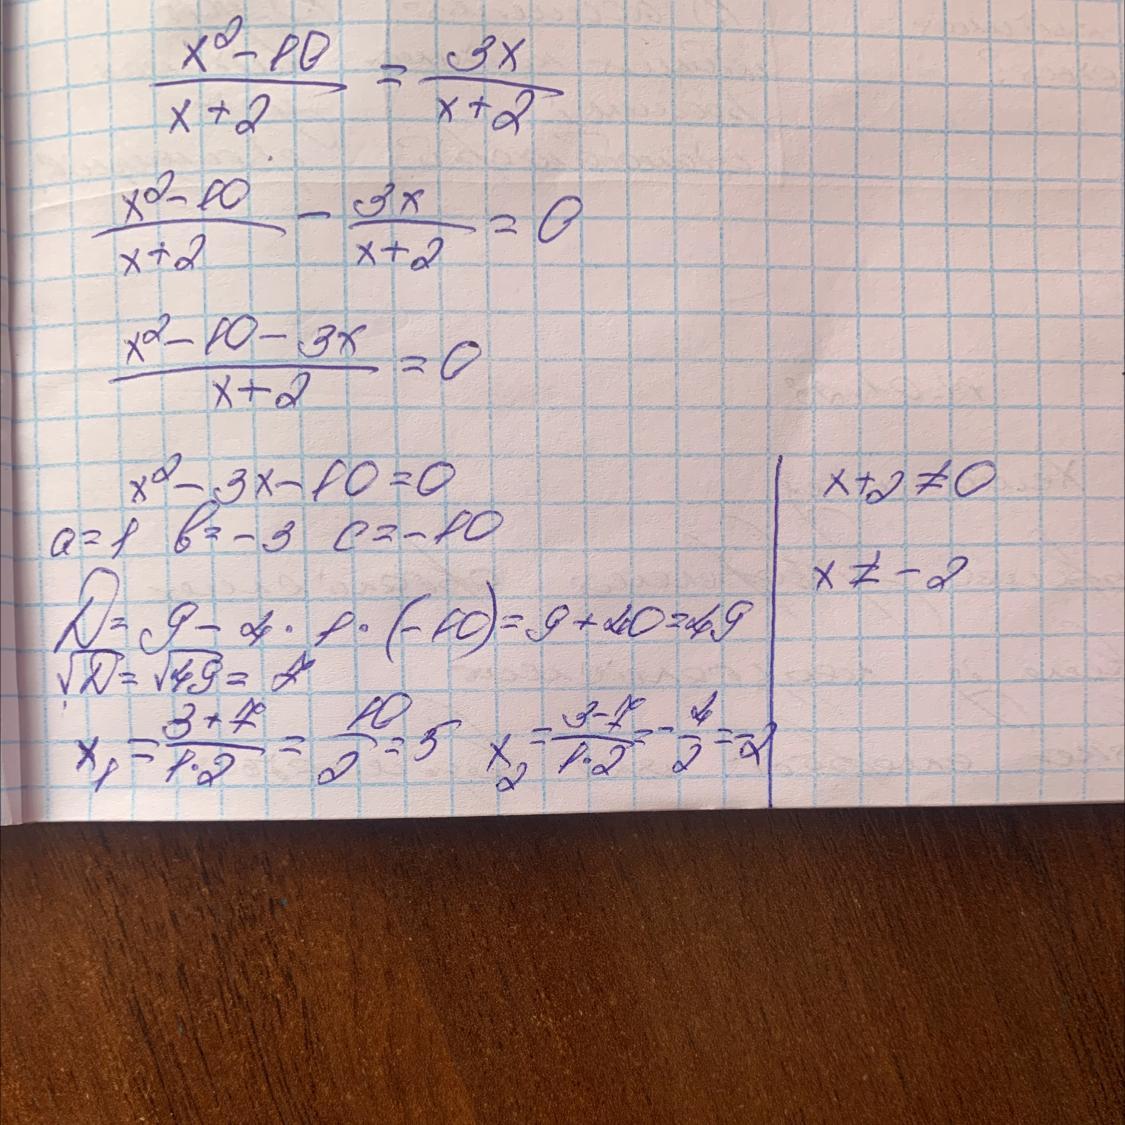 (x² - 10)/(x + 2) = 3x/(x + 2)
(x² - 10)/(x + 2) - 3x/(x + 2) = 0
(x² - 10 - 3x)/(x + 2) = 0
x² - 3x - 10 = 0
a = 1 b = -3 c = -10
D = 9 - 4 · 1 · (-10) = 9 + 40 = 49
√D = √49 = 7
x₁ = (3 + 7)/(1 · 2) = 10/2 = 5 x₂ = (3 - 7)/(1 · 2) = -4/2 = -2
x + 2 ≠ 0
x ≠ -2